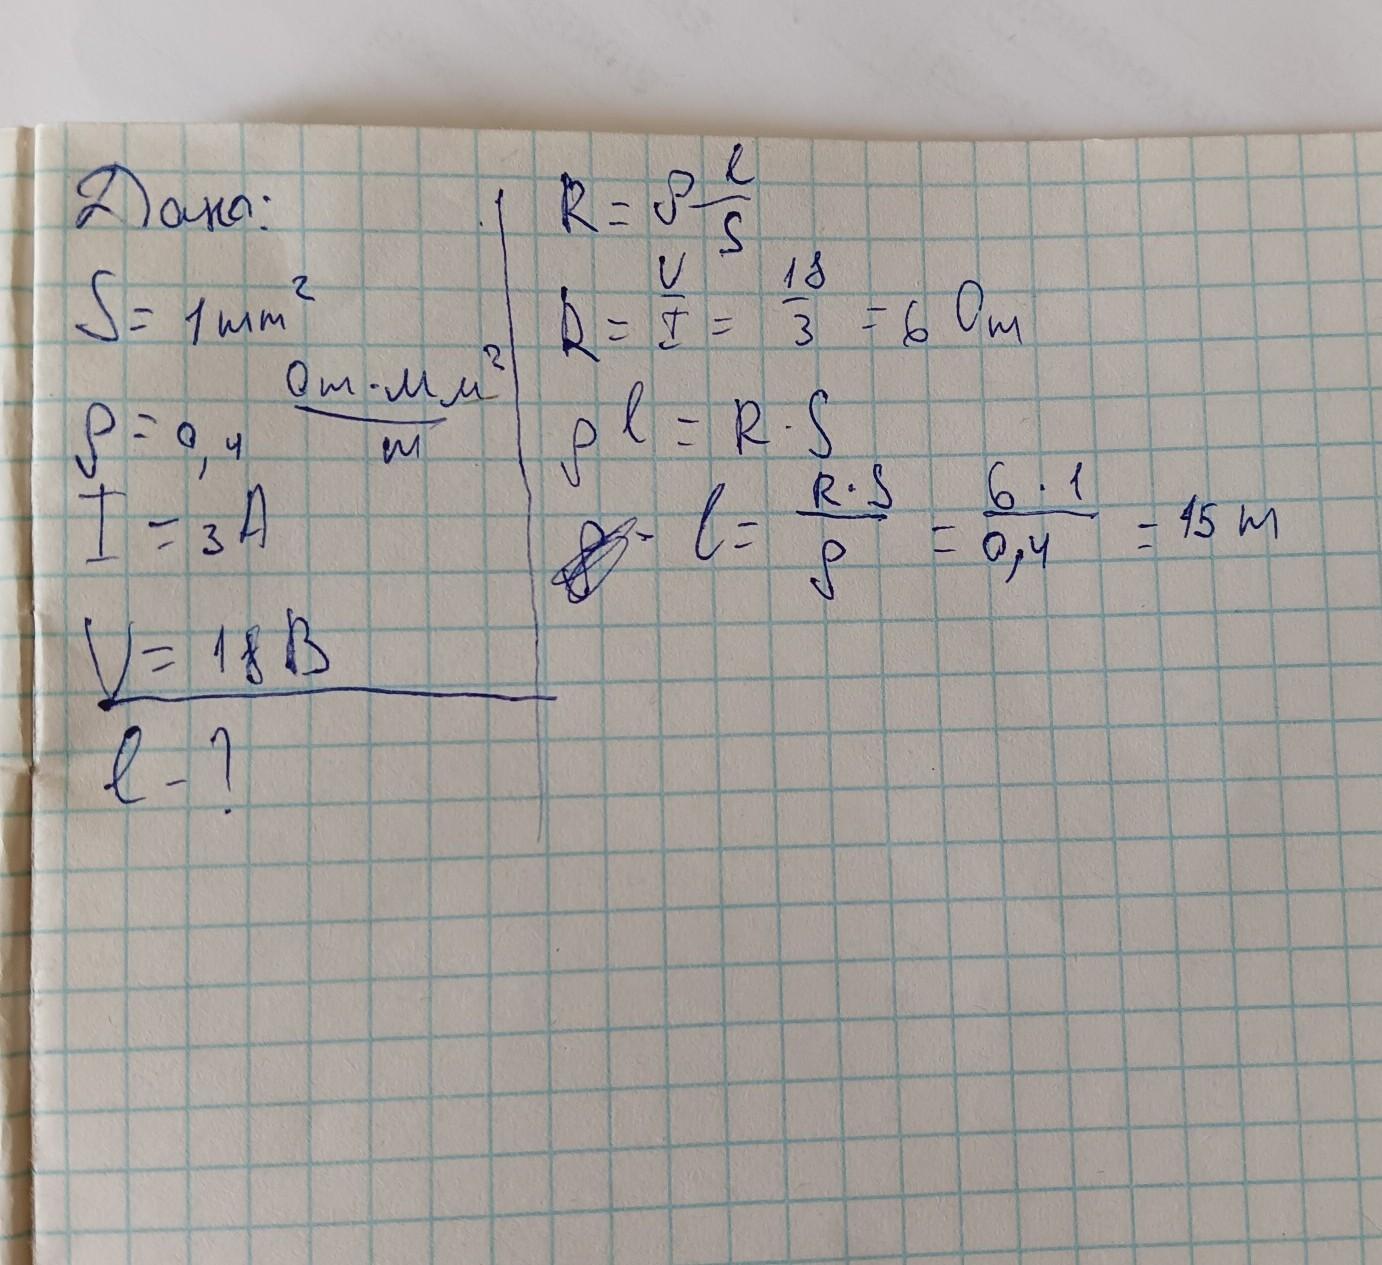 Дано:
S = 1 mm²
ρ = 0,4 Om·мм²/m
I = 3 A
V = 18 B
l - ?
R = ρ l/S
R = V/I = 18/3 = 6 Om
ρ l = R · S
l = R·S/ρ = 6·1/0,4 = 15 m